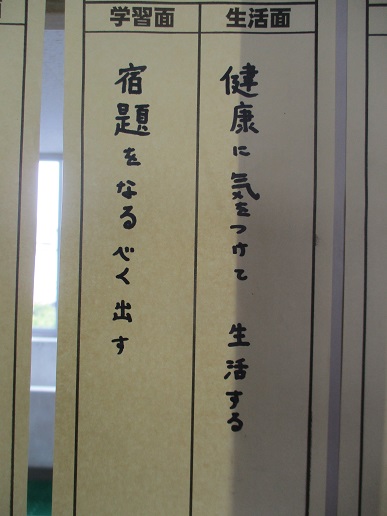 生活面
健康に気をつけて 生活する
学習面
宿題をなるべく出す